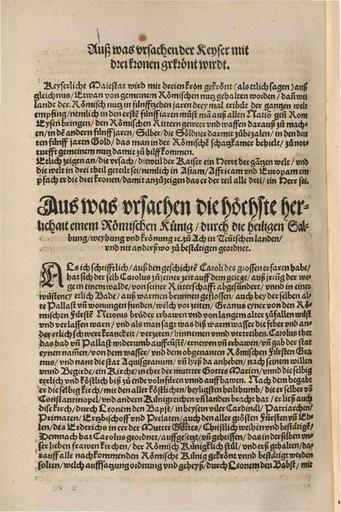 Auß was vrsachen der Keyser mit
drei kronen gekrönt wirdt.
Keyserliche Maiestat wird mit dreien kron gekrönt (als etlich sagen) auß
gleichnus / Etwan von gemeinem Römischen nutz gehalten worden / daß wei
landt der Römisch nutz in fünffzehen jaren drey mal tribut der gantzen welt
empfing / nemlich in den erste fünff jaren můst mā auß allen Natiō gen Rom
Eysen bringen / den Römischen Rittern gewer vnd waffen darauß zu mach-
en / in dē andern fünff jaren / Silber / die Söldner darmit zůbezalen / in den drit
ten fünff jaren Gold / das man in der Römischē schatzkamer behielt / zů not-
turfft gemeinem nutz damit zů hilff kommen.
Etlich zeigen an / die vrsach / dieweil der Kaiser ein Herre der gātzen welt / vnd
die welt in drei theil geteilt sei / nemlich in Asiam / Affricam vnd Europam em
pfach er die drei kronen / damit anzůzeigen das er der teil alle drei / ein Herr sei.
Aus was vrsachen die höchste her-
lichait einem Römischen Künig / durch die heiligen Sal-
bung / weyhung vnd krönung ꝛc. zů Ach in Teütschen landen /
vnd nit anderßwo zů bestätigen geordnet.
Als ich schrifftlich / auß den geschichtē Caroli des grossen erfaren habe /
hat sich der selb Carolus zů einer zeit auff dem geieg / auß jrrung der we-
ge in einem walde / von seiner Ritterschafft abgesündert / vnnd in einer
wüsteney etlich Bade / auß warmen brunnen geflossen / auch bey der selben al-
te Pallast vnd wonungen funden / welch vor zeiten / Granus eyner von den Rö-
mischen Fürstē Neronis brůder erbawen vnd von langem alter zůfallen wüst
vnd verlassen warn / vnd als man sagt was diß warm wasser die selber an an-
deg der leich schwere kranckeiten / verzern / hinnemen vnnd vertreiben. Carolus thet
das bad vn̄ Pallast widerumb auffrüstē / ernewen vn̄ erbawen / vn̄ gab der stat
eynen namē / von dem wasser / vnd dem obgenanten Römischen Fürsten Gra
nus / vnd nant die stat Aquisgranum / vn̄ hyeß da anheben / nach seinem willen
vnnd Begirde / ein Kirche / in ehre der mutter Gottes Marien / vnnd die selbig
etzlich vnd köstlich biß zů ende volnstrecken vnd aufbawen. Nach dem begabt
er die selbig kirch / mit den aller köstlichen / heyligsten heilthumb / die er selber vō
Constantinopel / vnd andern Künigreichen vn̄ landen bracht hat / er ließ auch
dise kirch / durch Leonem den Bapst / in beysein viler Cardinäl / Patriarchen /
Primaten / Ertzbischoff vnd Prelaten / auch den aller grösten Fürsten vō En-
den / des Erdtrichs in ere der Mutter Gottes / Christlich weihen vnd bestätigē.
Demnach hat Carolus geordnet / auffgesetzt / vn̄ geheissen / das in der selben vn-
ser lieben frawen kirchen / der Römisch Küniglich stůl / vnd erß gehalten / da-
rauff alle nachkommenden Römische Künig gekrönt vnnd bestätigt werden
solten / welch auffsatzung ordnung vnd geheyß / durch Leonem den Babst / mit